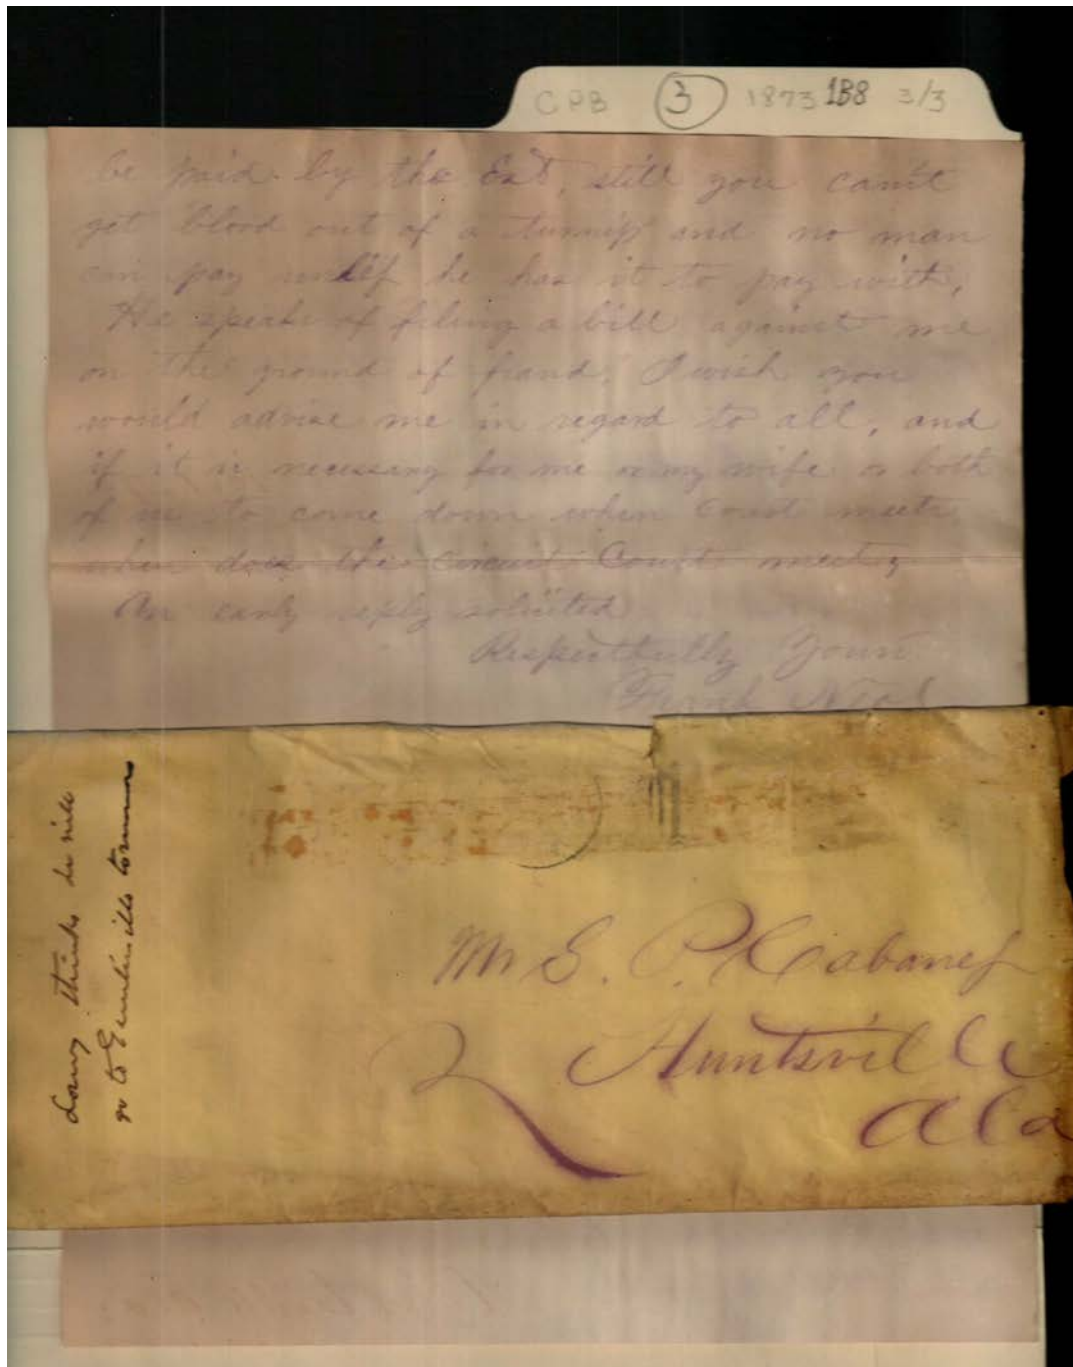 CPB 3 1873 1B8 3/3
be paid by the Est, still you can't
get blood out of a turnip and no man
can pay unless he has it to pay with,
He speaks of filing a bill against me
on the ground of fraud, I wish you
would advise me in regard to all, and
if it is necessary for me or my wife or both
of us to come down when Court meets
when does the Circuit Court meet?
An early reply solicited
Respectfully Yours
Frank
Mr S. P. Cabaness
Huntsville
Ala
thinks he will
go to